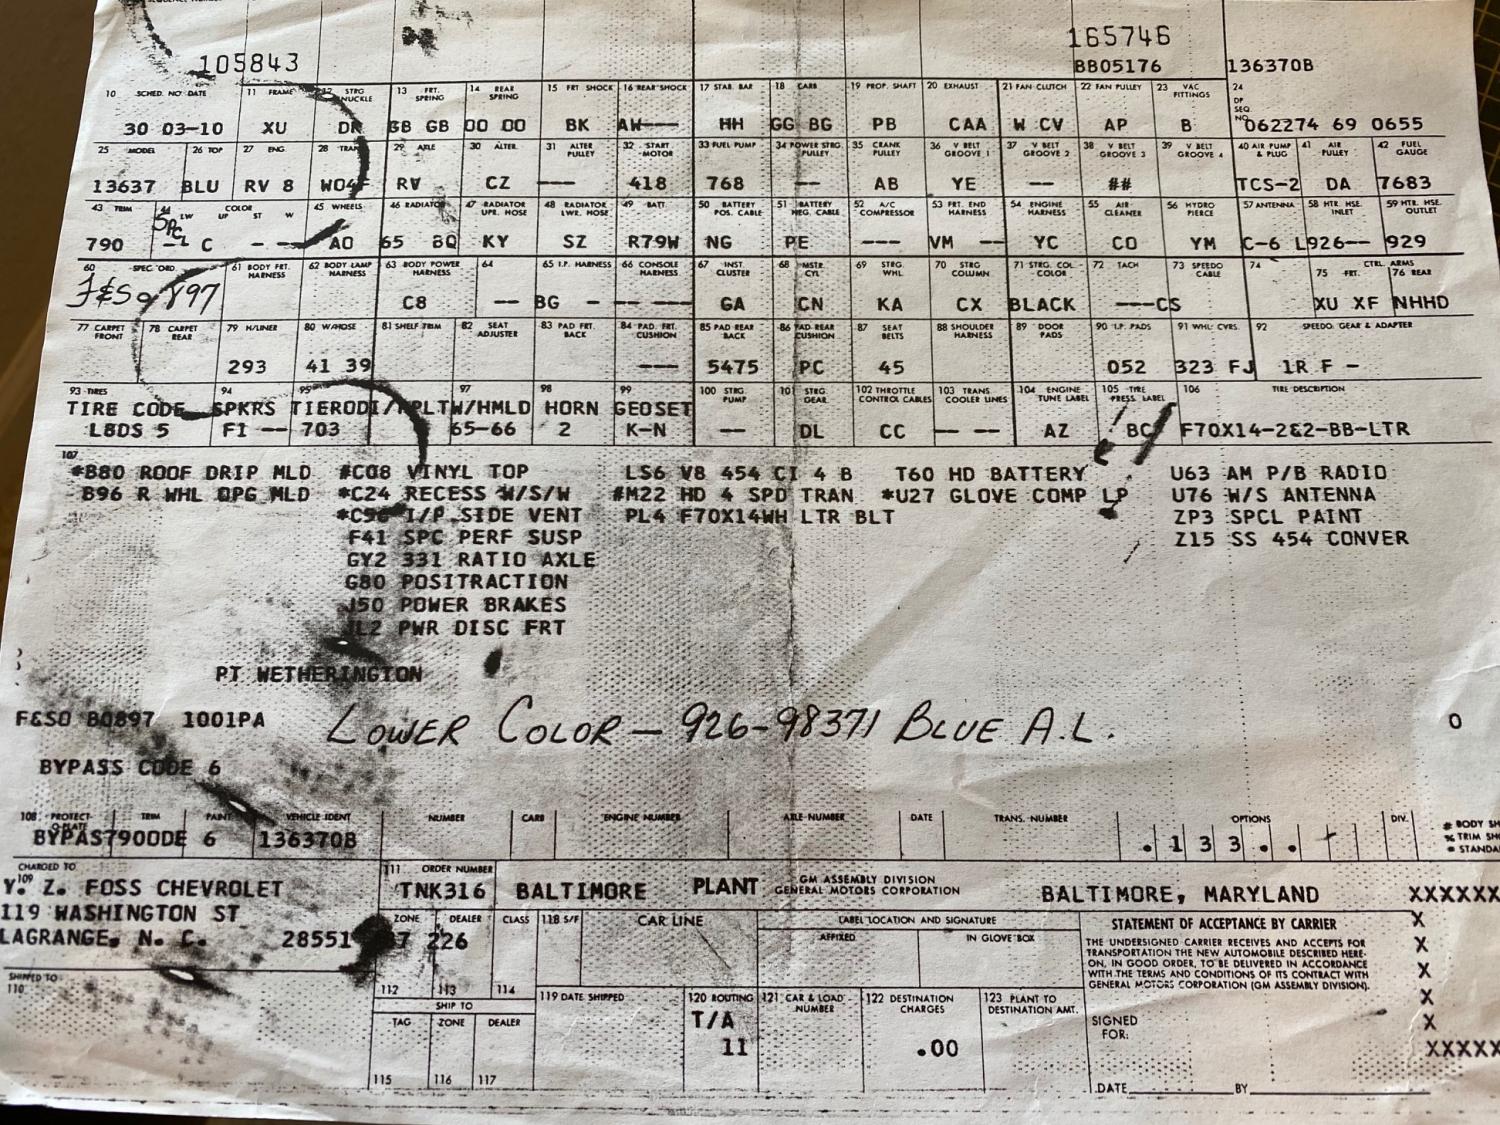 165746
105843 BB05176 136370B
10 SCHED. NO DATE 11 FRAME 12 STRG KNUCKLE 13 FRT. SPRING 14 REAR SPRING 15 FRT SHOCK 16 REAR SHOCK 17 STAB. BAR 18 CARB 19 PROP. SHAFT 20 EXHAUST 21 FAN CLUTCH 22 FAN PULLEY 23 VAC FITTINGS 24 DP SEQ. NO
30 03-10 XU DK GB GB OO OO BK AW—— HH GG BG PB CAA W CV AP B 062274 69 0655
25 MODEL 26 TOP 27 ENG. 28 TRAN 29 AXLE 30 ALTER. 31 ALTER PULLEY 32 START MOTOR 33 FUEL PUMP 34 POWER STRG. PULLEY 35 CRANK PULLEY 36 V BELT GROOVE 1 37 V BELT GROOVE 2 38 V BELT GROOVE 3 39 V BELT GROOVE 4 40 AIR PUMP & PLUG 41 AIR PULLEY 42 FUEL GAUGE
13637 BLU RV 8 WO4F RV CZ --- 418 768 AB YE -- ## TCS-2 DA 7683
43 TRIM 44 LW COLOR UP ST W 45 WHEELS 46 RADIATOR 47 RADIATOR UPR. HOSE 48 RADIATOR LWR. HOSE 49 BATT. 50 BATTERY POS. CABLE 51 BATTERY NEG. CABLE 52 A/C COMPRESSOR 53 FRT. END HARNESS 54 ENGINE HARNESS 55 AIR CLEANER 56 HYDRO PIERCE 57 ANTENNA 58 HTR. HSE. INLET 59 HTR. HSE. OUTLET
SPCL
790 -- C - - AO 65 BQ KY SZ R79W NG PE --- VM -- YC CO YM C-6 L926-- 929
60 SPEC. ORD. 61 BODY FRT. HARNESS 62 BODY LAMP HARNESS 63 BODY POWER HARNESS 64 65 I.P. HARNESS 66 CONSOLE HARNESS 67 INST. CLUSTER 68 MSTR. CYL. 69 STRG. WHL 70 STRG COLUMN 71 STRG. COL. COLOR 72 TACH 73 SPEEDO CABLE 74 CTRL. ARMS 75 FRT. 76 REAR
F&SO 9897 C8 -- BG - -- -- GA CN KA CX BLACK ---CS XU XF NHHD
77 CARPET FRONT 78 CARPET REAR 79 H/LINER 80 W/HOSE 81 SHELF TRIM 82 SEAT ADJUSTER 83 PAD FRT. BACK 84 PAD. FRT. CUSHION 85 PAD REAR BACK 86 PAD REAR CUSHION 87 SEAT BELTS 88 SHOULDER HARNESS 89 DOOR PADS 90 I.P. PADS 91 WHL. CVRS. 92 SPEEDO. GEAR & ADAPTER
293 41 39 --- 5475 PC 45 052 323 FJ 1R F -
93 TIRES 94 95 97 98 99 100 STRG PUMP 101 STRG GEAR 102 THROTTLE CONTROL CABLES 103 TRANS. COOLER LINES 104 ENGINE TUNE LABEL 105 TIRE PRESS. LABEL 106 TIRE DESCRIPTION
TIRE CODE SPKRS TIEROD I/PPLT W/HMLD HORN GEOSET
L8DS 5 FI -- 703 65-66 2 K-N -- DL CC -- -- AZ BC F70X14-2&2-BB-LTR
107
*B80 ROOF DRIP MLD #C08 VINYL TOP LS6 V8 454 CI 4 B T60 HD BATTERY U63 AM P/B RADIO
B96 R WHL OPG MLD *C24 RECESS W/S/W #M22 HD 4 SPD TRAN *U27 GLOVE COMP LP U76 W/S ANTENNA
*C96 I/P SIDE VENT PL4 F70X14WH LTR BLT ZP3 SPCL PAINT
F41 SPC PERF SUSP Z15 SS 454 CONVER
GY2 331 RATIO AXLE
G80 POSITRACTION
J50 POWER BRAKES
JL2 PWR DISC FRT
PT WETHERINGTON
F&SO BQ897 1001PA LOWER COLOR — 926-98371 BLUE A.L. 0
BYPASS CODE 6
108 PROTECT-O-PLATE TRIM PAINT VEHICLE IDENT NUMBER CARB ENGINE NUMBER AXLE NUMBER DATE TRANS. NUMBER OPTIONS DIV.
BYPAS7900DE 6 136370B . 1 3 3 . .
# BODY SH
% TRIM SH
* STANDA
CHARGED TO 109 111 ORDER NUMBER
Y. Z. FOSS CHEVROLET TNK316 BALTIMORE PLANT GM ASSEMBLY DIVISION GENERAL MOTORS CORPORATION BALTIMORE, MARYLAND XXXXXX
119 WASHINGTON ST ZONE DEALER CLASS 118 S/F CAR LINE LABEL LOCATION AND SIGNATURE STATEMENT OF ACCEPTANCE BY CARRIER X
LAGRANGE, N. C. 28551 7 226 AFFIXED IN GLOVE BOX
THE UNDERSIGNED CARRIER RECEIVES AND ACCEPTS FOR X
TRANSPORTATION THE NEW AUTOMOBILE DESCRIBED HERE-
ON, IN GOOD ORDER, TO BE DELIVERED IN ACCORDANCE X
WITH THE TERMS AND CONDITIONS OF ITS CONTRACT WITH
GENERAL MOTORS CORPORATION (GM ASSEMBLY DIVISION). X
SHIPPED TO 110 112 113 114 119 DATE SHIPPED 120 ROUTING 121 CAR & LOAD NUMBER 122 DESTINATION CHARGES 123 PLANT TO DESTINATION AMT. X
SHIP TO
TAG ZONE DEALER T/A SIGNED FOR: X
11 .00 XXXXX
115 116 117 DATE BY